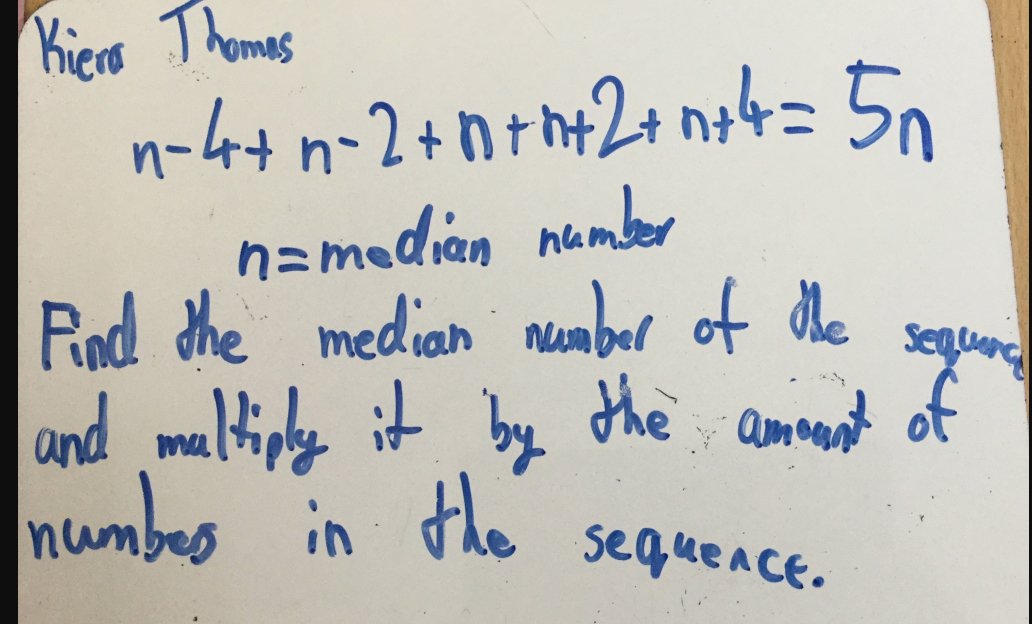 Kiera Thomas
n-4+ n-2+n+n+2+n+4= 5n
n=median number
Find the median number of the sequence
and multiply it by the amount of
numbers in the sequence.